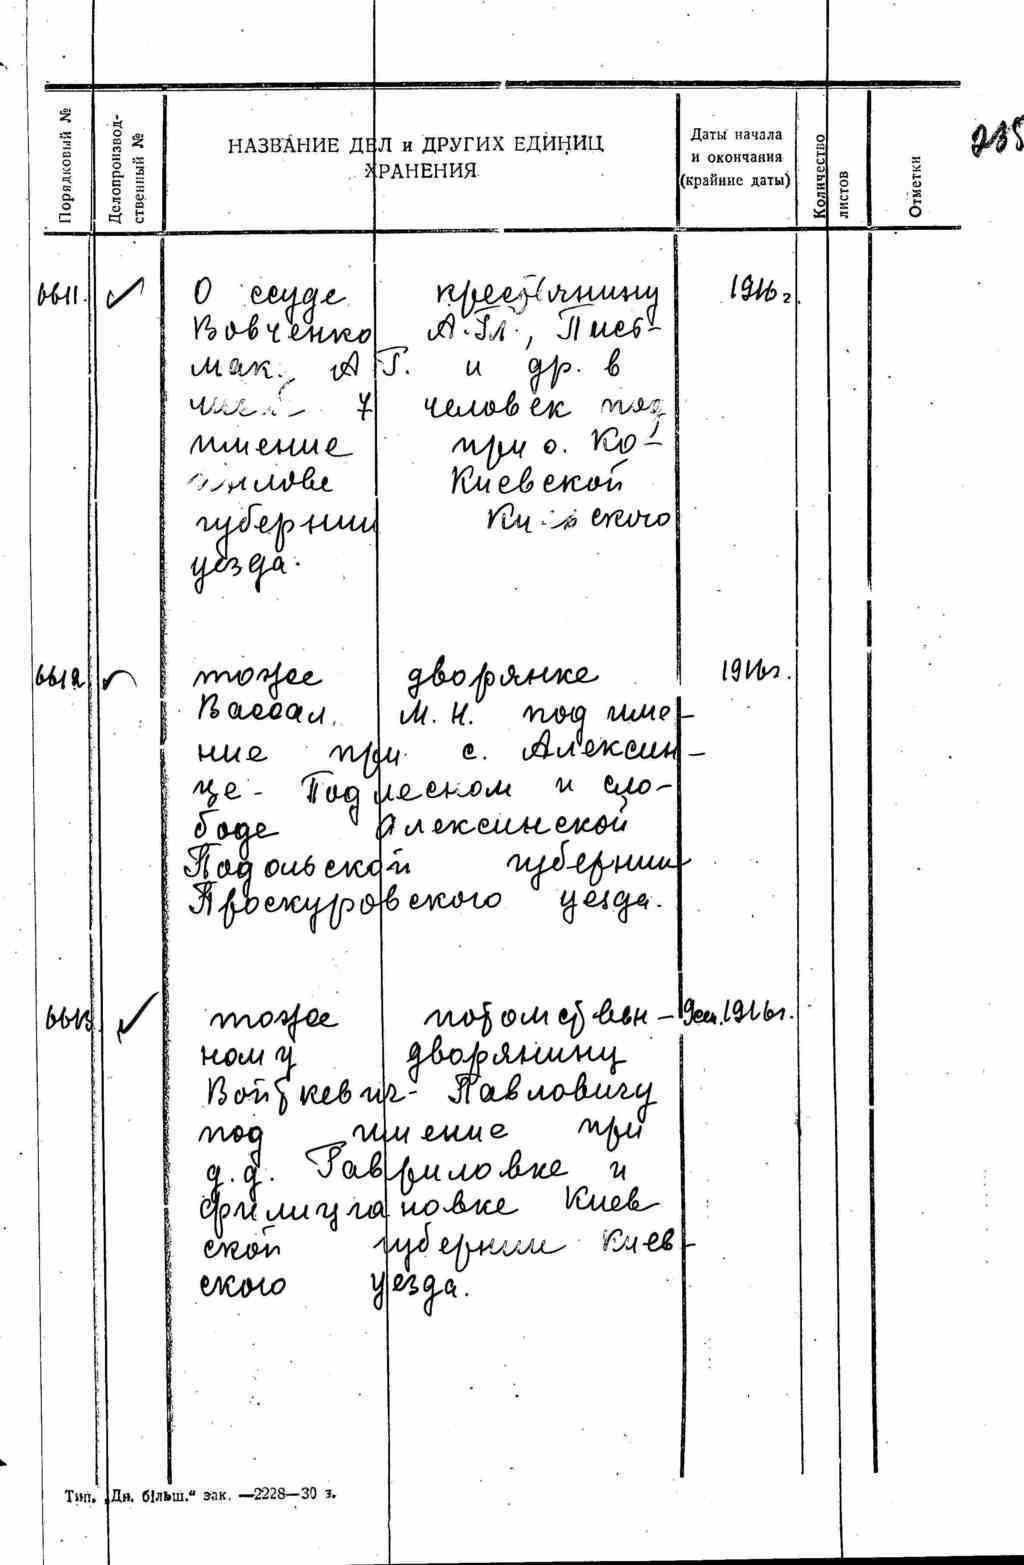 235
Порядковый №
Делопроизвод-
ственный №
НАЗВАНИЕ ДЕЛ и ДРУГИХ ЕДИНИЦ
ХРАНЕНИЯ
Даты начала
и окончания
(крайние даты)
Количество
листов
Отметки
6611. О ссуде крестьянину 1916 г.
Вовченко А. Гл., Пись-
мак. А Г. и др. в
7 человек под
имение при о. Ко-
Киевской
губернии Киевского
уезда.
6612 тоже дворянке 1916г.
Вассал. М. Н. под име-
ние при с. Алексин-
це - Подлесном и сло-
боде Алексинской
Подольской губернии
Проскуровского уезда.
6613 тоже потомствен- 1916г.
ному дворянину
Войткевич- Павловичу
под имение при
д.д. Гавриловке и
Киев
ской губернии Киев-
ского уезда.
Тип. „Дн. більш.“ зак. —2228—30 з.